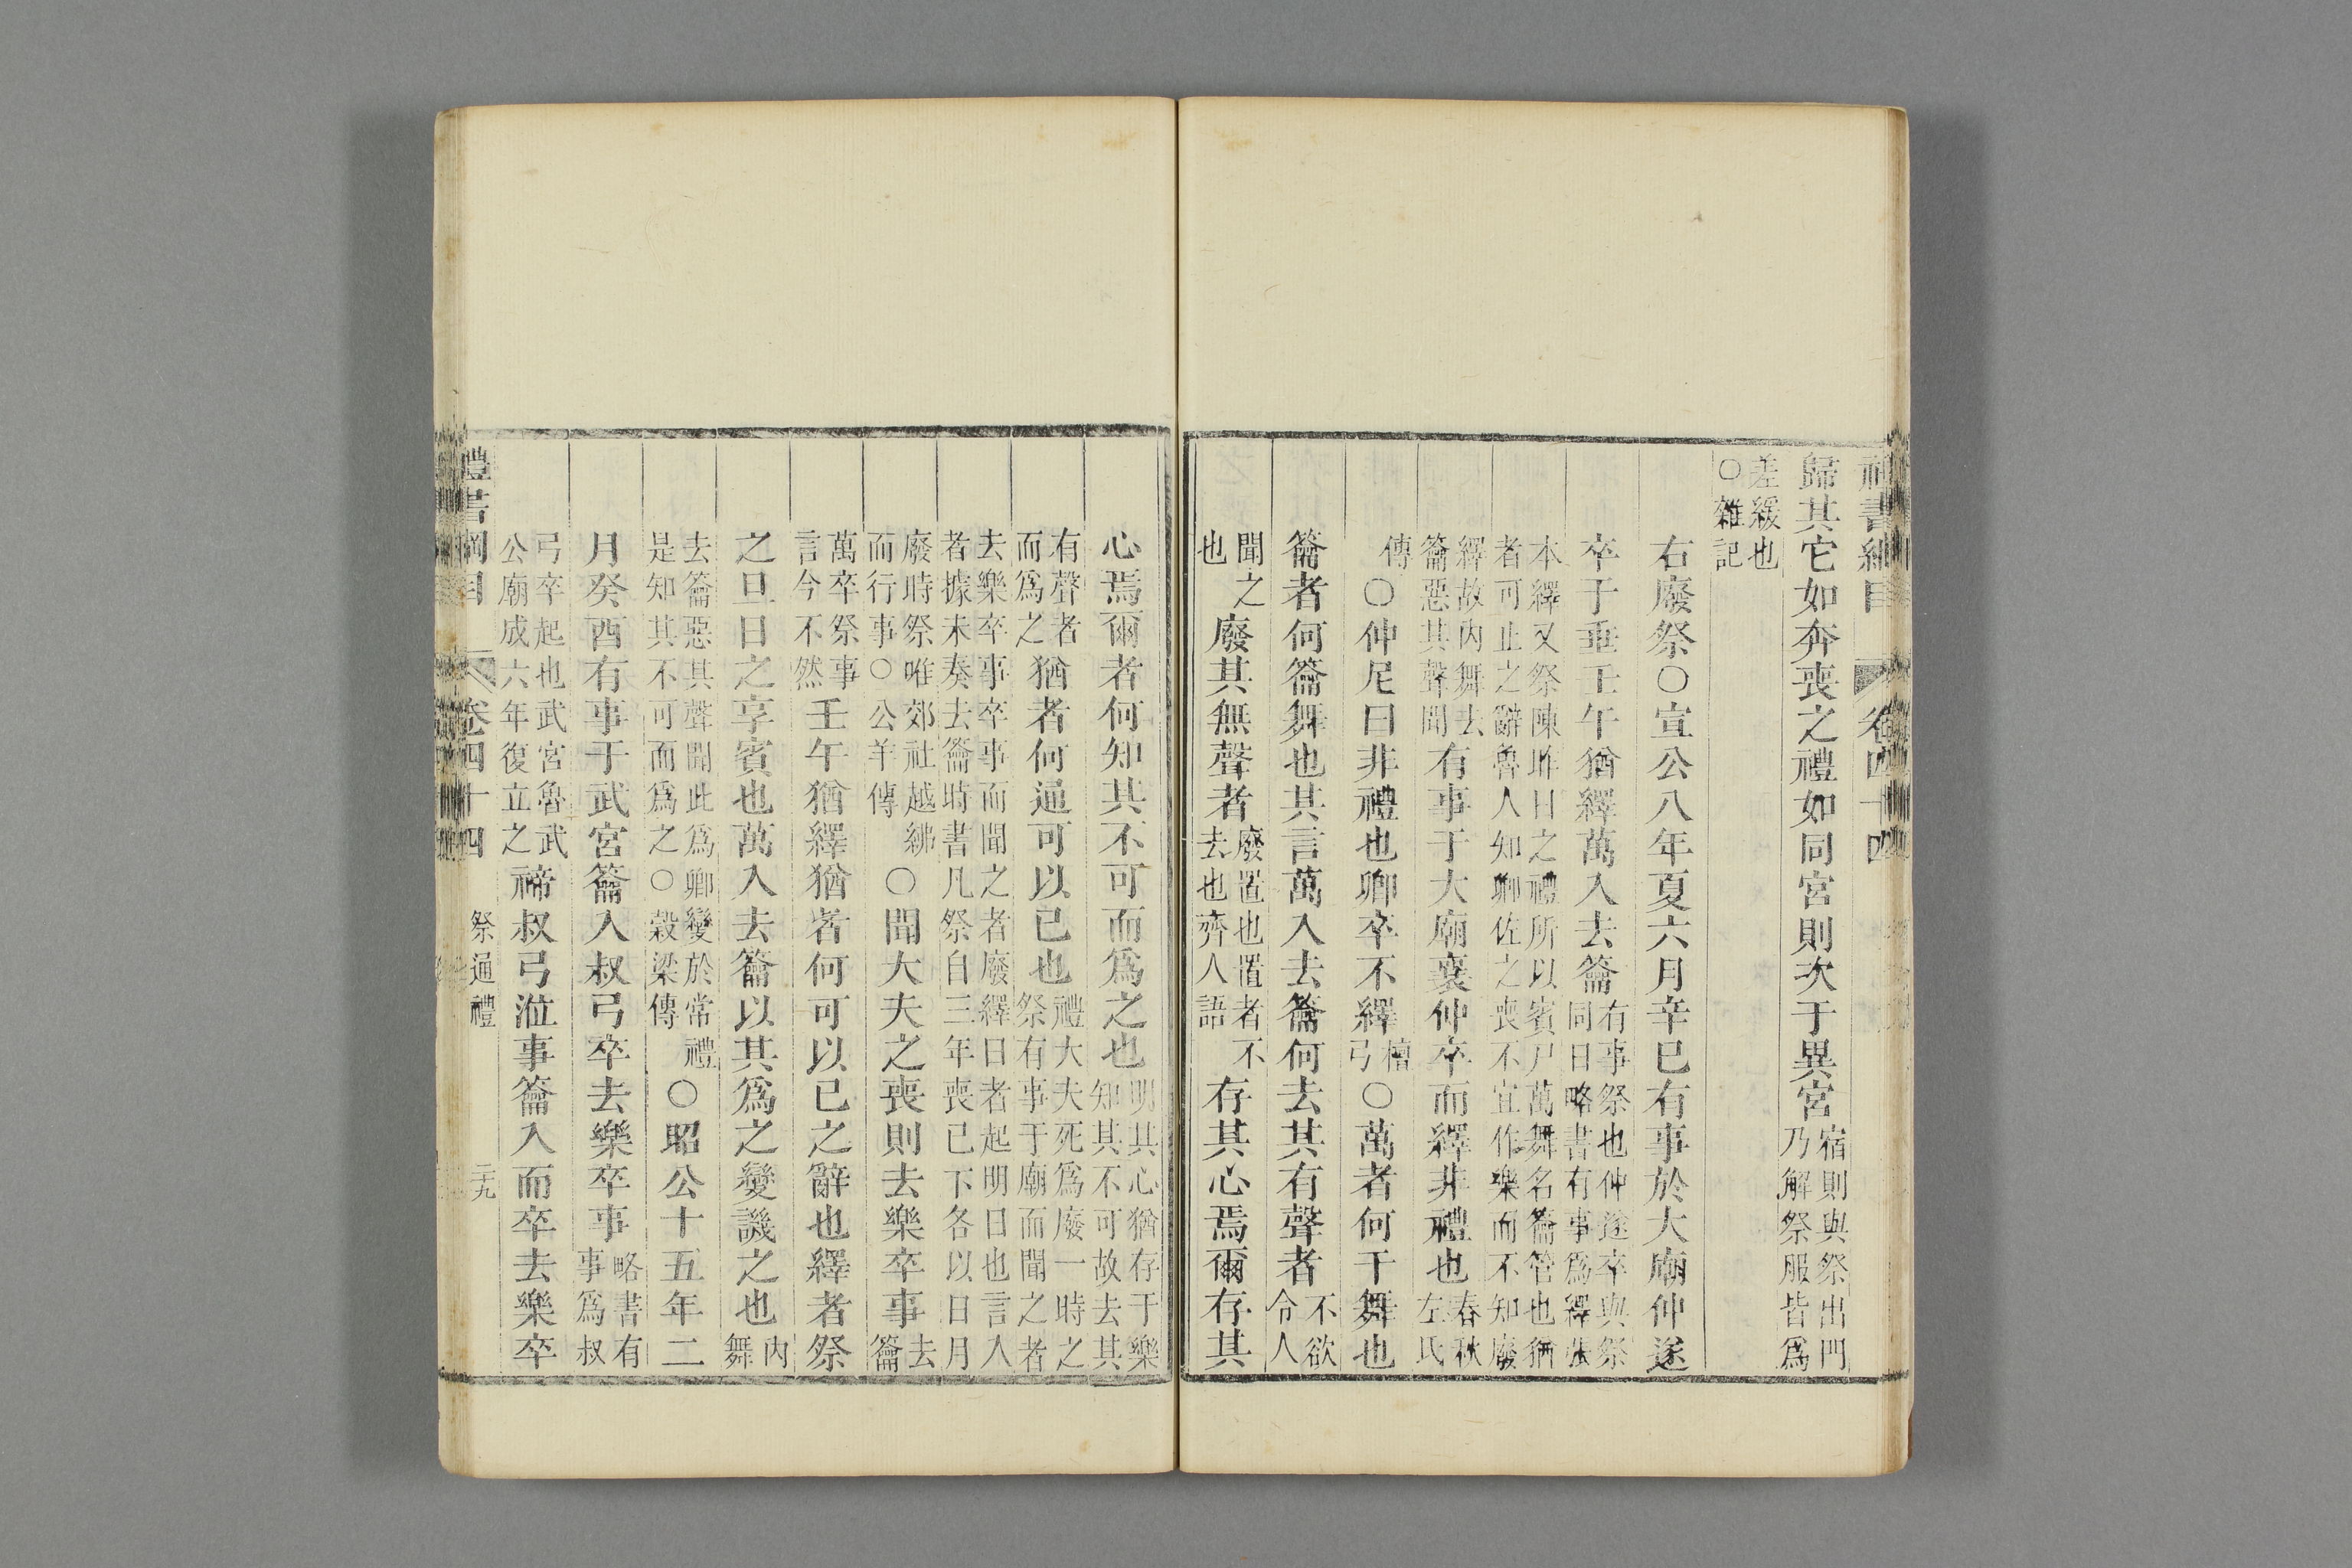 禮書綱目 卷四十四
歸其它如奔喪之禮如同宮則次于異宮宿則與祭出門乃解祭服皆爲
差緩也○雜記
右廢祭○宣公八年夏六月辛巳有事於大廟仲遂
卒于垂壬午猶繹萬入去籥有事祭也仲遂卒與祭同日略書有事爲繹張
本繹又祭陳昨日之禮所以賓尸萬舞名籥管也猶者可止之辭魯人知卿佐之喪不宜作樂而不知廢
繹故內舞去籥惡其聲聞有事于大廟襄仲卒而繹非禮也春秋左氏
傳○仲尼曰非禮也卿卒不繹檀弓○萬者何干舞也
籥者何籥舞也其言萬入去籥何去其有聲者不欲令人
聞之也廢其無聲者廢置也置者不去也齊人語存其心焉爾存其
心焉爾者何知其不可而爲之也明其心猶存于樂知其不可故去其
有聲者而爲之猶者何通可以已也禮大夫死爲廢一時之祭有事于廟而聞之者
去樂卒事卒事而聞之者廢繹日者起明日也言入者據未奏去籥時書凡祭自三年喪已下各以日月
廢時祭唯郊社越紼而行事○公羊傳○聞大夫之喪則去樂卒事去籥
萬卒祭事言今不然壬午猶繹猶者何可以已之辭也繹者祭
之旦日之享賓也萬入去籥以其爲之變譏之也內舞
去籥惡其聲聞此爲卿變於常禮是知其不可而爲之○穀梁傳○昭公十五年二
月癸酉有事于武宮籥入叔弓卒去樂卒事略書有事爲叔
弓卒起也武宮魯武公廟成六年復立之禘叔弓涖事籥入而卒去樂卒
禮書綱目 卷四十四 祭通禮 二十九